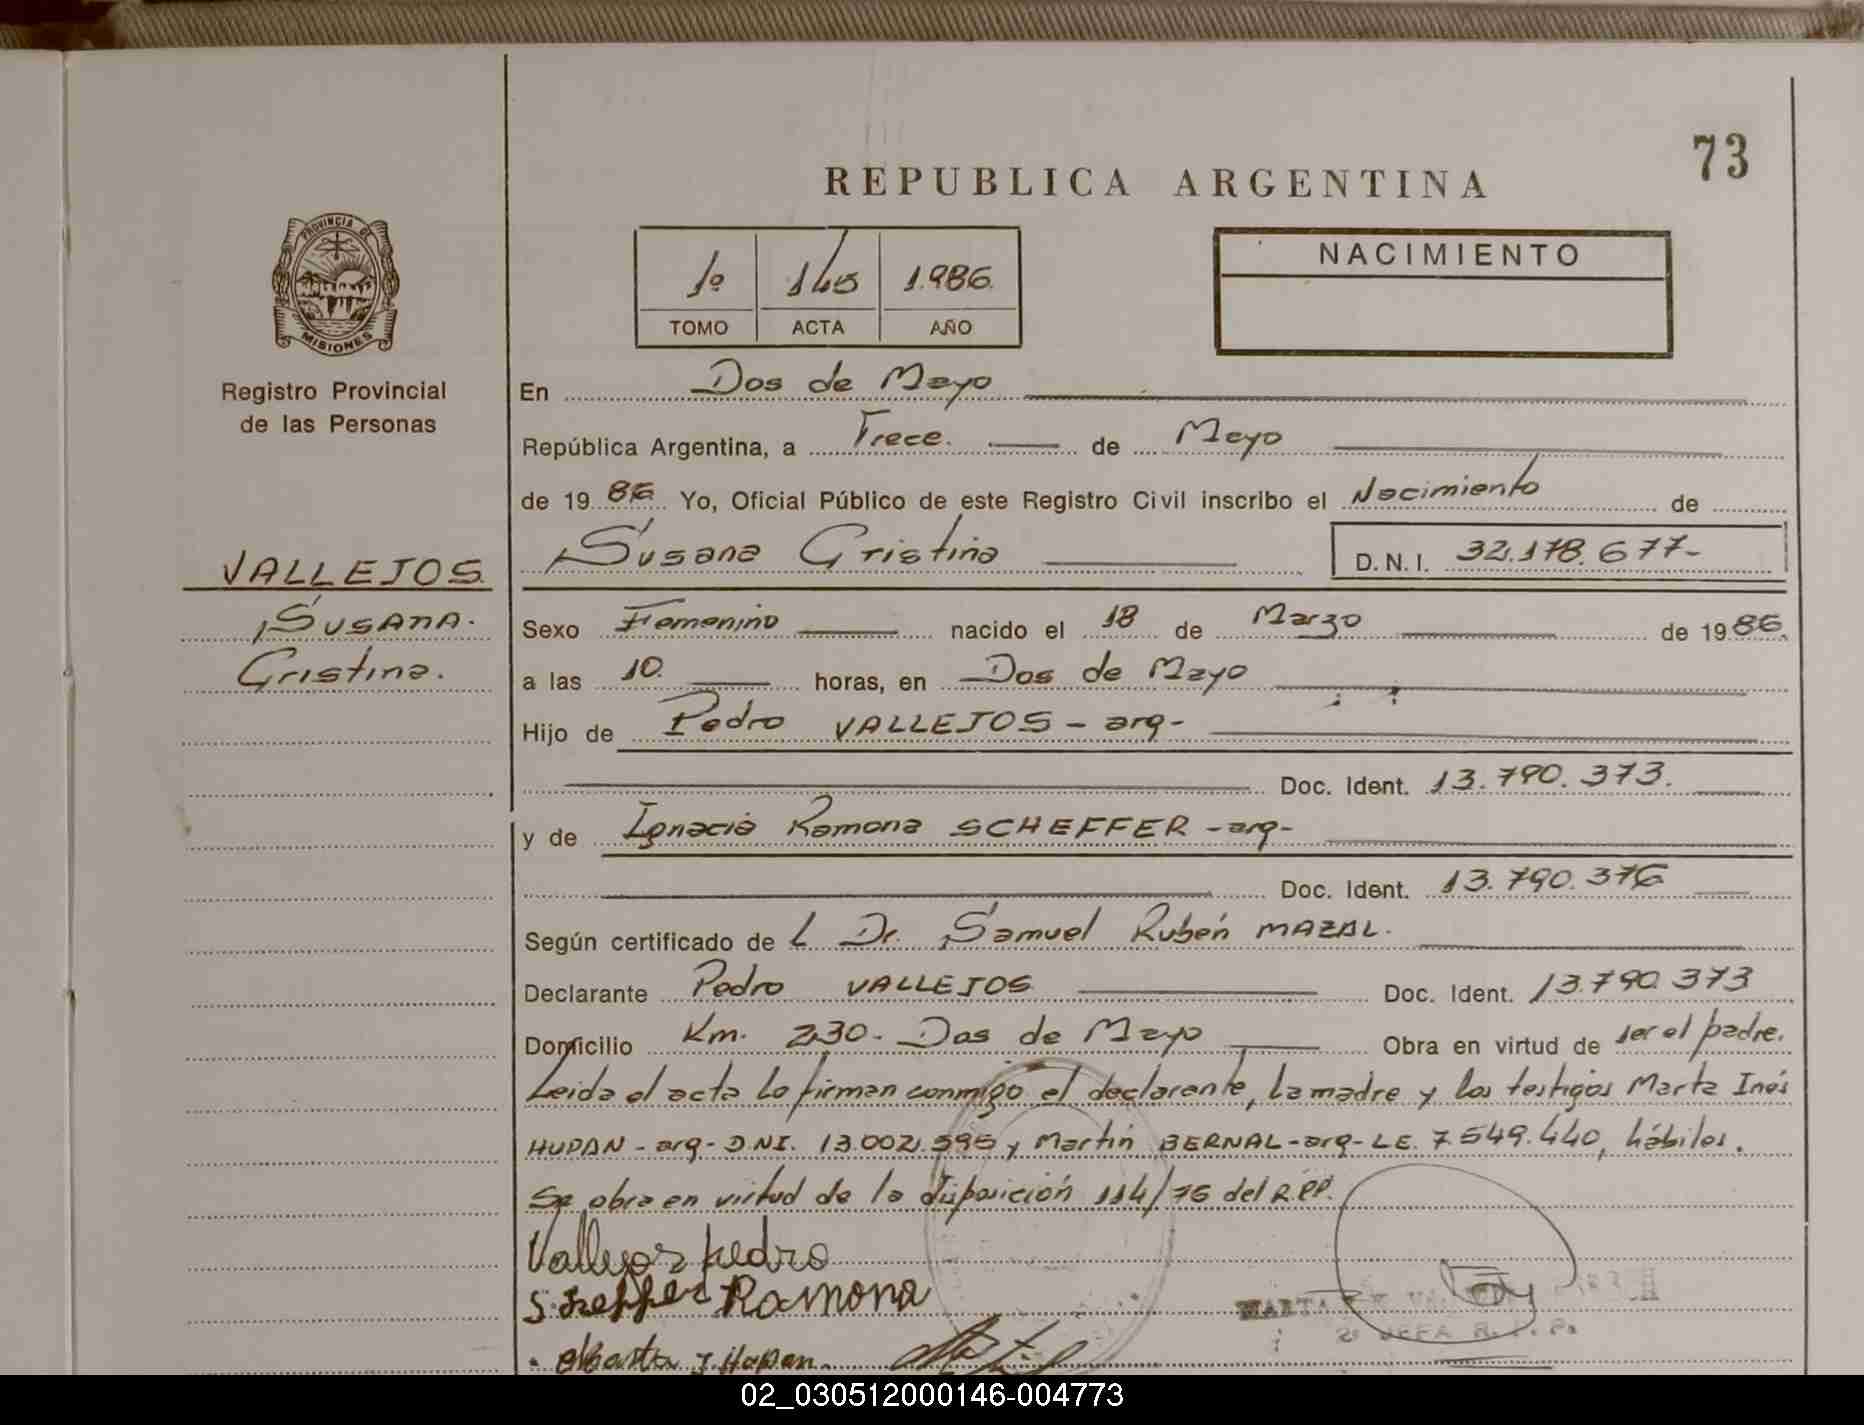 73
REPUBLICA ARGENTINA
PROVINCIA DE
MISIONES
1º 145 1.986.
TOMO ACTA AÑO
NACIMIENTO
Registro Provincial
de las Personas
En Dos de Mayo
República Argentina, a Trece. de Mayo
de 1986 Yo, Oficial Público de este Registro Civil inscribo el Nacimiento de
VALLEJOS
Susana Cristina D.N.I. 32.178.677-
SUSANA.
Cristina.
Sexo Femenino nacido el 18 de Marzo de 1986.
a las 10. horas, en Dos de Mayo
Hijo de Pedro VALLEJOS - arg-
Doc. Ident. 13.790.373.
y de Ignacia Ramona SCHEFFER - arg-
Doc. Ident. 13.790.376
Según certificado de L Dr. Samuel Rubén MAZAL.
Declarante Pedro VALLEJOS Doc. Ident. 13.790.373
Domicilio Km. 230- Dos de Mayo Obra en virtud de ser el padre.
Leida el acta la firman conmigo el declarante, la madre y los testigos Marta Inés
HUPAN - arg- D.NI. 13.002.595 y Martín BERNAL - arg- LE. 7.549.440, hábiles.
Se obra en virtud de la disposición 114/76 del R.PP.
Vallejos pedro
Scheffer Ramona
MARTA
JEFA R. P. P.
Marta I. Hupan.
02_030512000146-004773